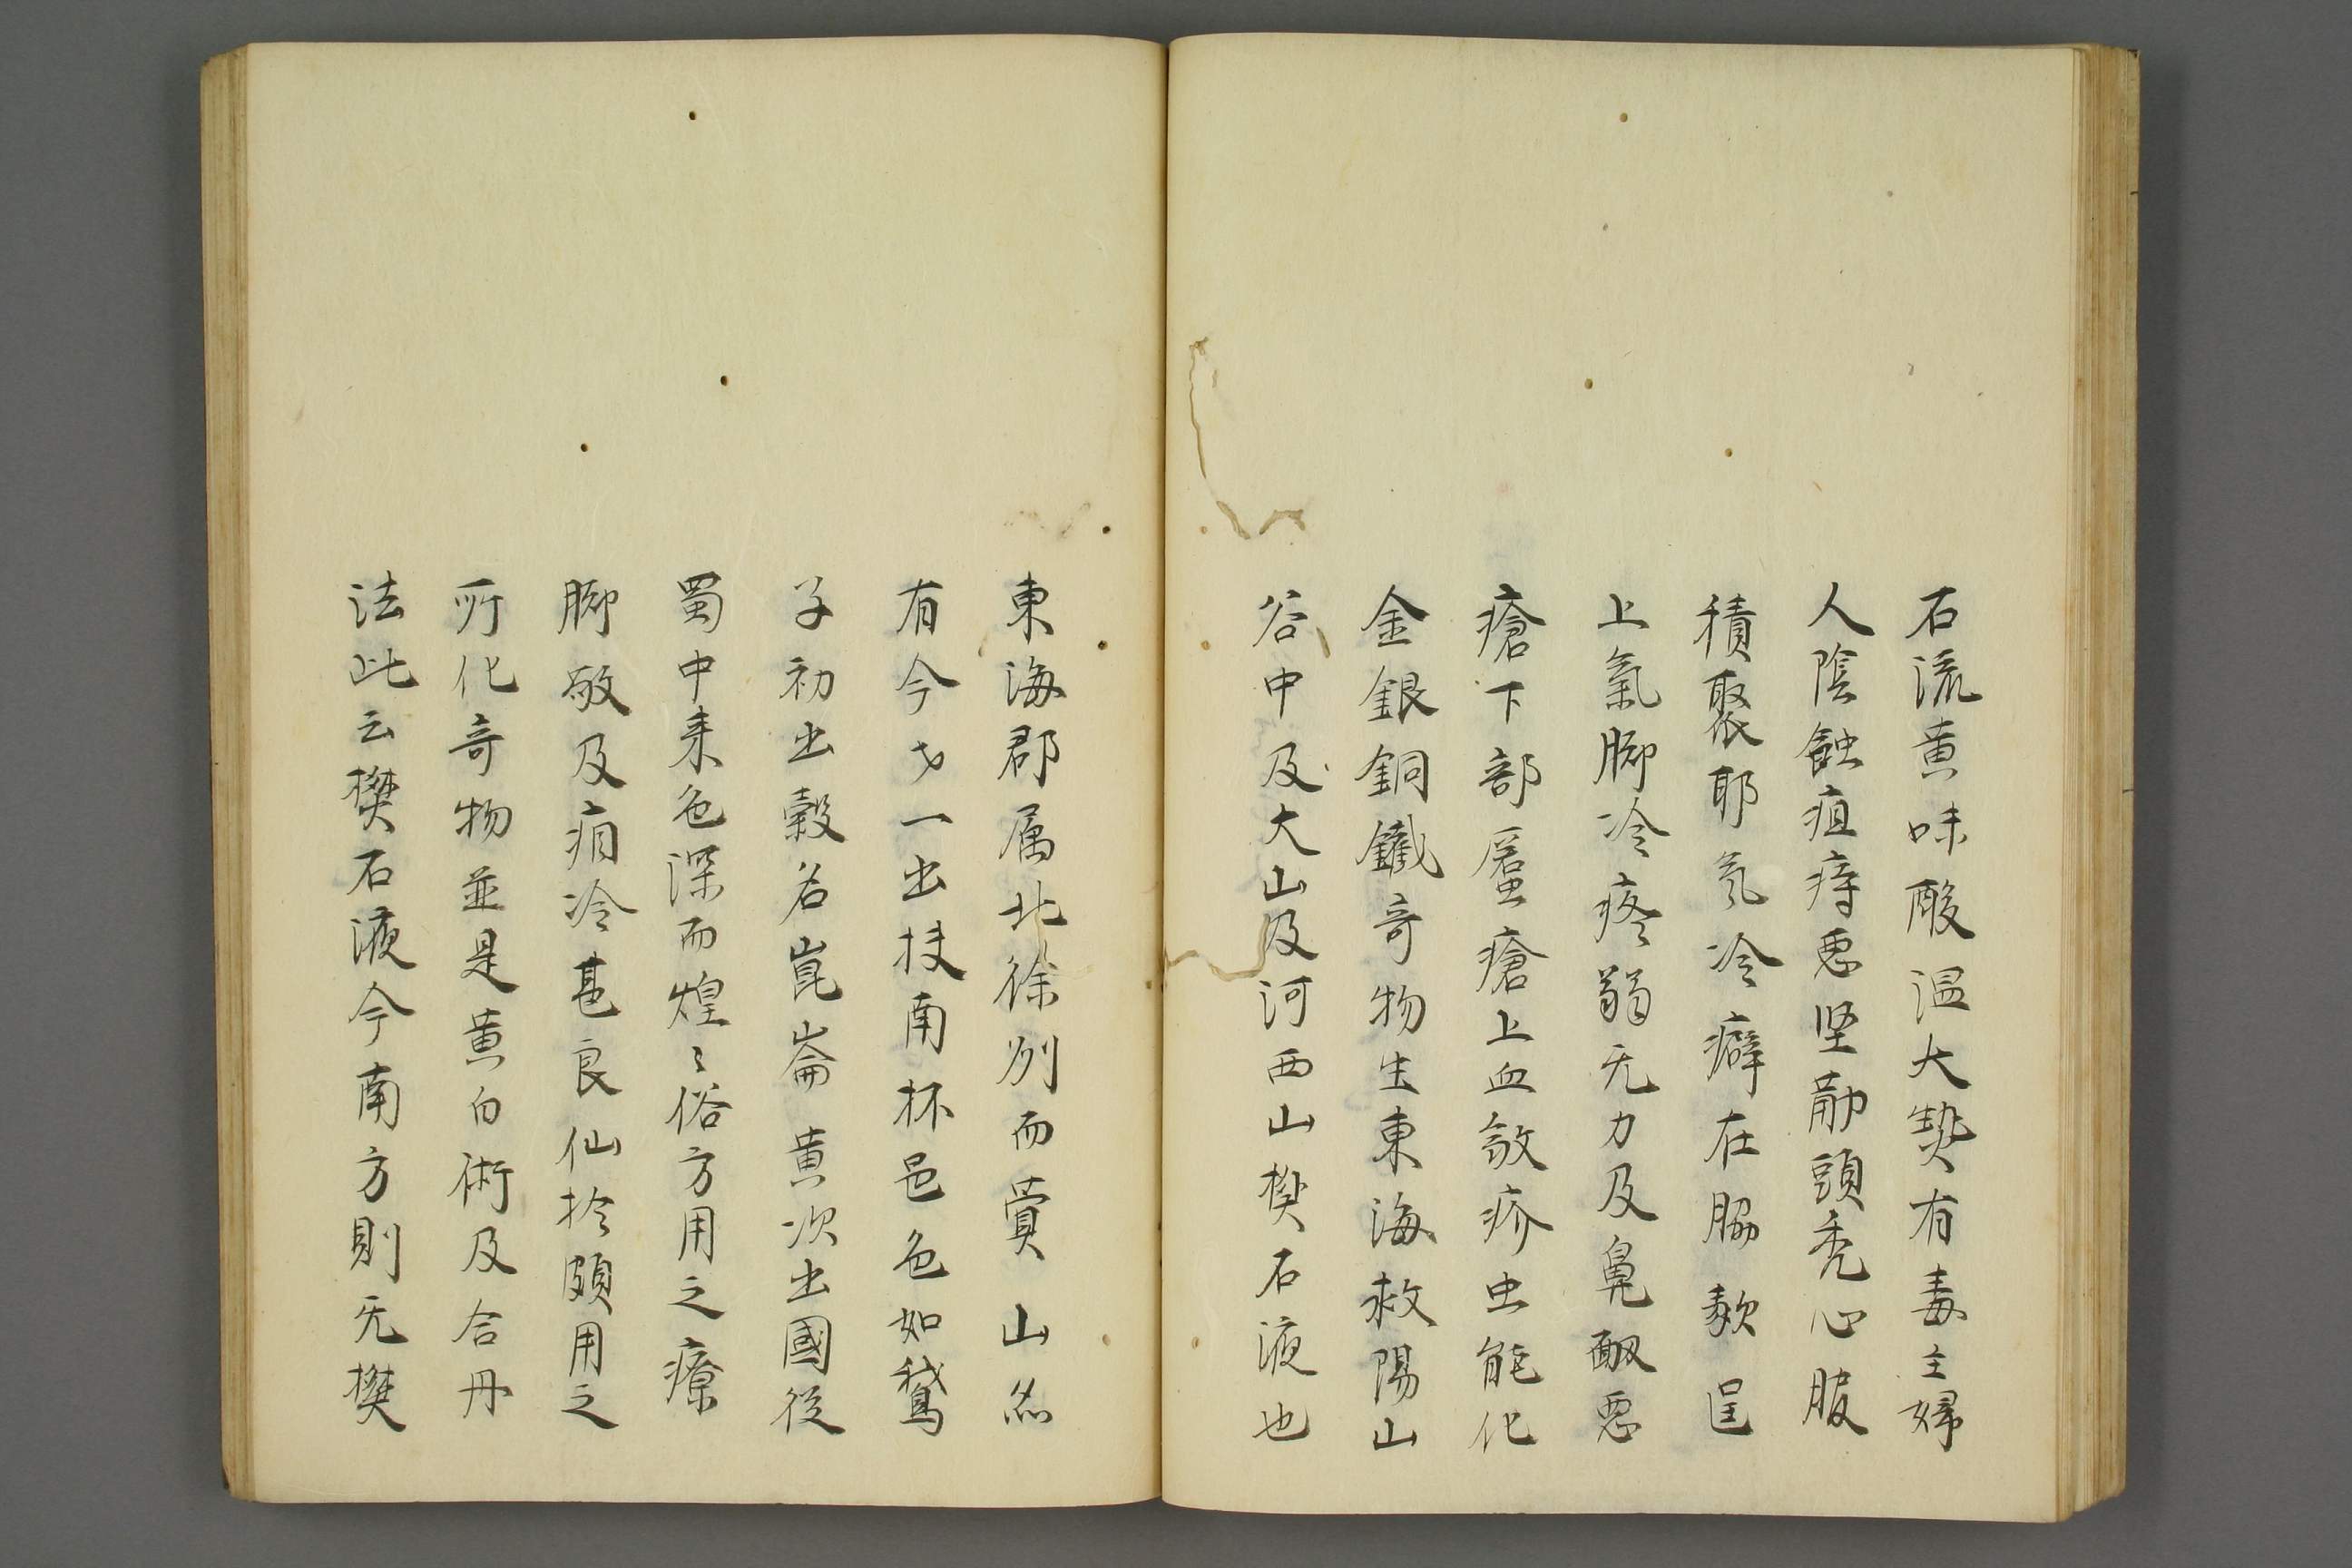 石流黄味酸温大㷍有毒主婦
人陰蝕疽痔悪坚勎頭禿心腹
積聚耶氣冷癖在脇欬逆
上氣脚冷疼弱无力及鼻衄悪
瘡下部䘌瘡上血敘疥虫能化
金銀銅鐵奇物生東海救陽山
谷中及大山及河西山樊石液也
東海郡属北徐州而賣山亦
有今才一出扶南林邑色如鵞
子初出㲉名崑崙黄次出國從
蜀中来色深而煌〻俗方用之療
脚敬及痼冷甚良仙於頗用之
所化奇物並是黄白術及合丹
法此云樊石液今南方則无樊